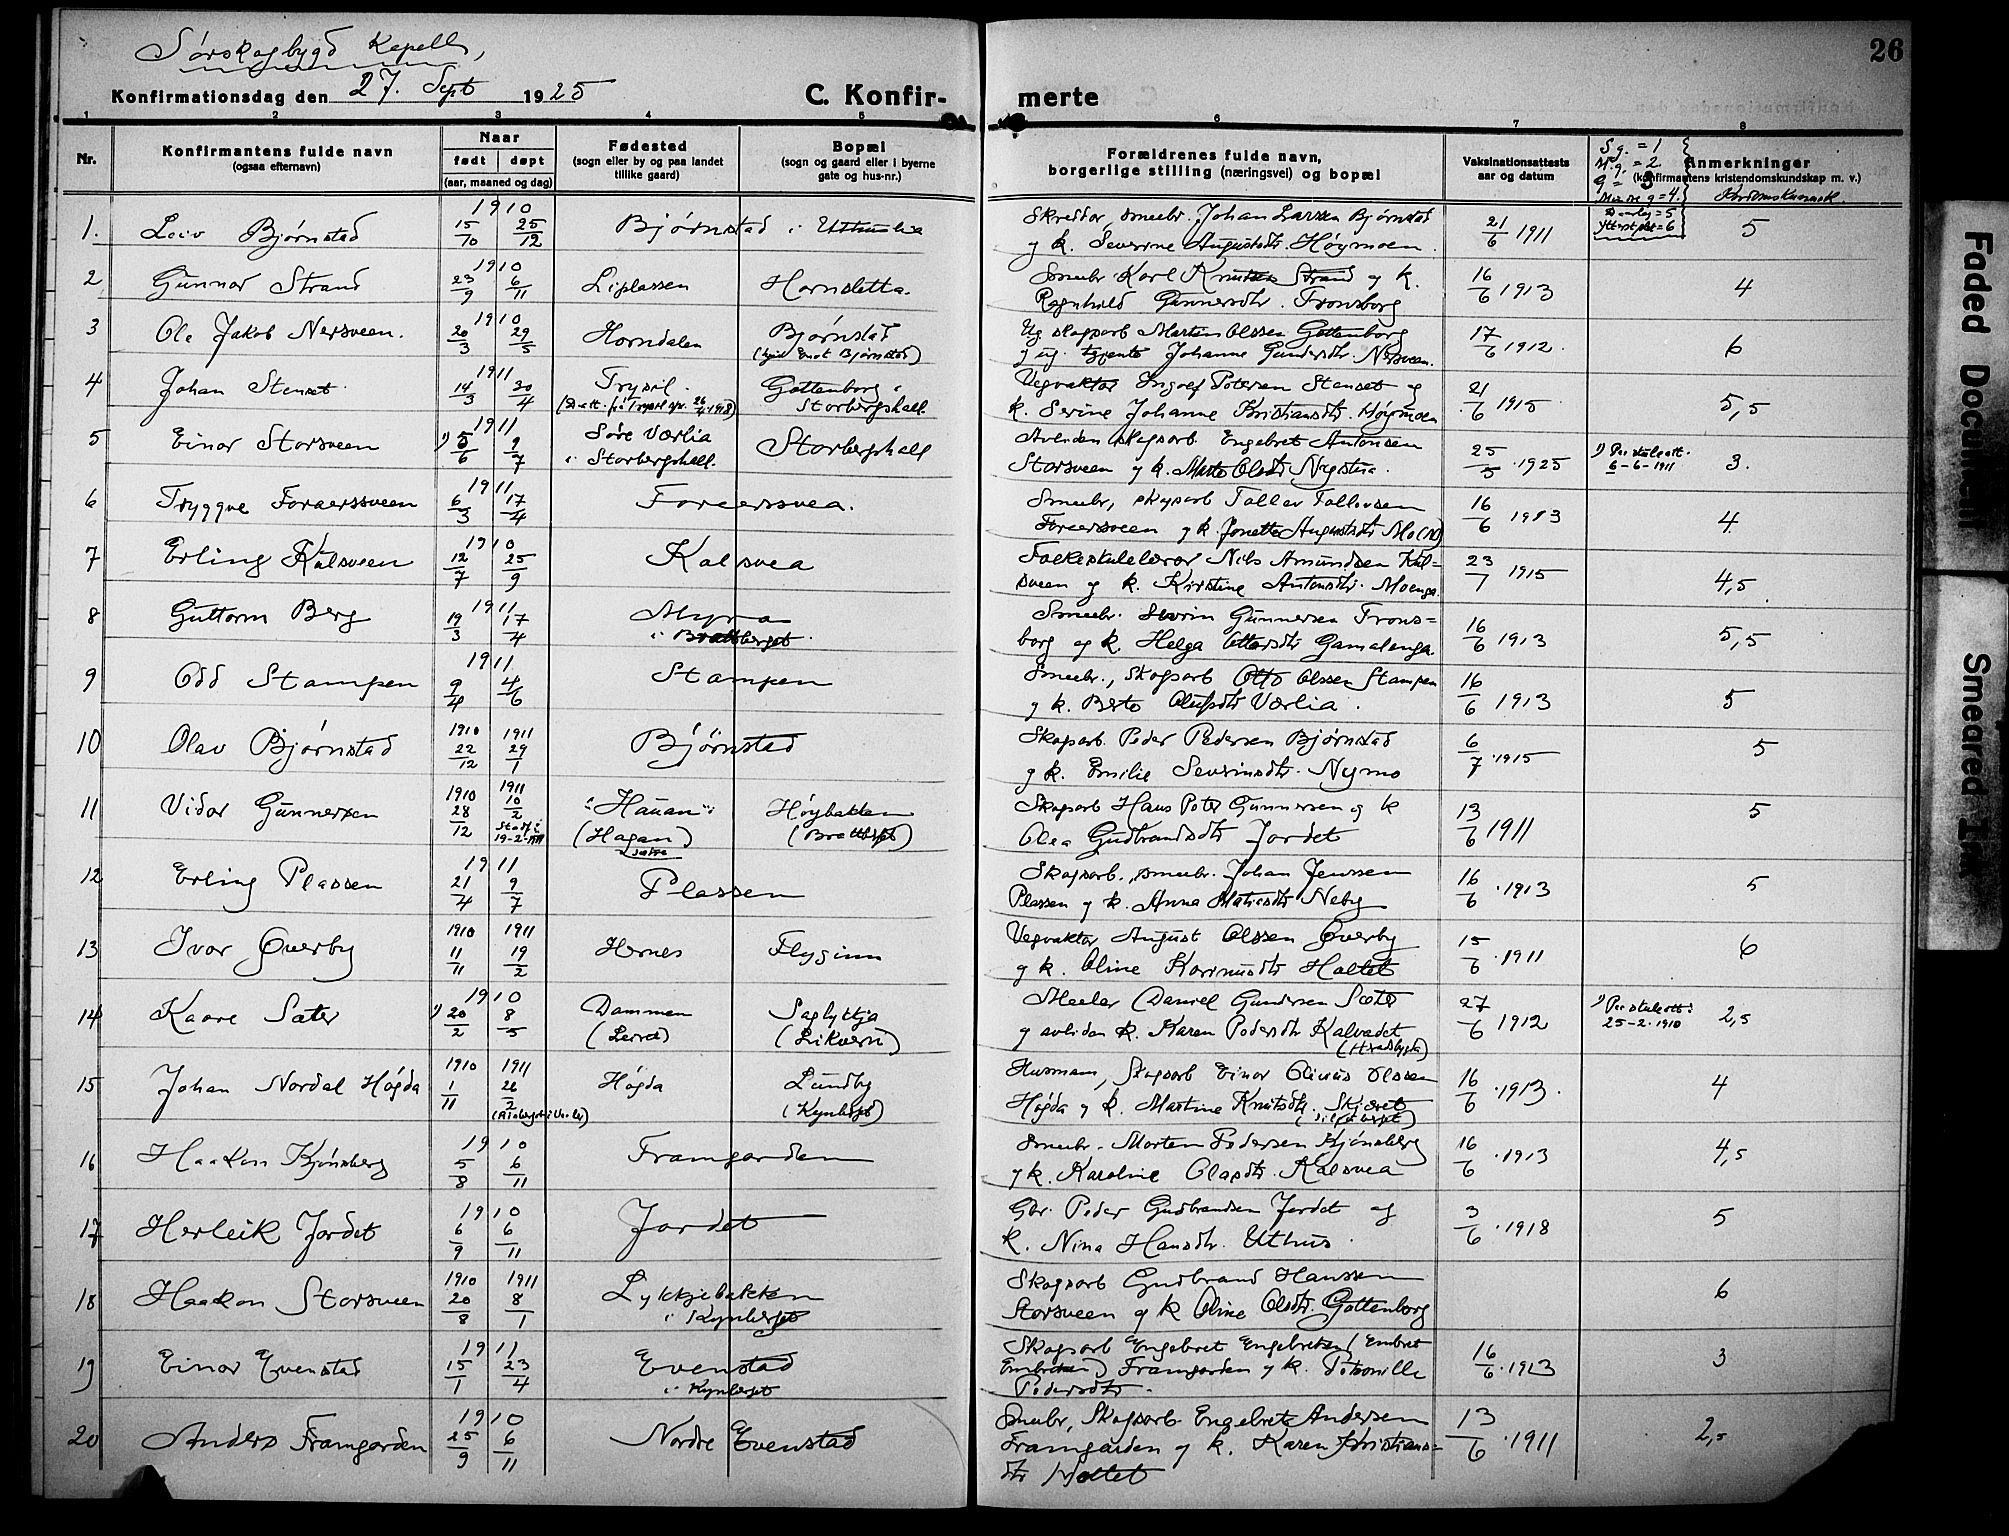 Sørskogbygd Kapell,
26
Konfirmationsdag den 27. Sept 1925
C. Konfir- merte
1 2 3 4 5 6 7 8
Nr.
Konfirmantens fulde navn
(ogsaa efternavn)
Naar
født døpt
(aar, maaned og dag)
Fødested
(sogn eller by og paa landet
tillike gaard)
Bopæl
(sogn og gaard eller i byerne
gate og hus-nr.)
Forældrenes fulde navn,
borgerlige stilling (næringsvei) og bopæl
Vaksinationsattests
aar og datum
S g. = 1
M. g. = 2
g = 3
Mindre g = 4.
Daarleg = 5
Ytterst = 6
Anmerkninger
(konfirmantens kristendomskundskap m. v.)
1. Leiv Bjørnstad 1910 15/10 25/12 Bjørnstad i
Skreddar, smeebr. Johan Larssen Bjørnstad
og k. Severine Augustsdtr Høymoen. 21/6 1911 5
2 Gunnar Strand 1910 23/9 6/11 Liplassen Hornsletta.
Smeebr. Karl Knutsen Strand og k.
Ragnhild Gunnersdtr. Fronsborg 16/6 1913 4
3 Ole Jakob Nersveen. 1910 20/3 29/5 Horndalen Bjørnstad
(hjaa Enot Bjørnstad)
Ug. skogsarb Martin Olssen Gøttenborg
og ug. tjente Johanne Gundersdtr. Nersveen. 17/6 1912. 6
4 Johan Stenset 1911 14/3 30/4 Trysil.
Gøttenborg i
Storbergshall
Vegvaktar Ingolf Petersen Stenset og
k. Serine Johanne Kristiansdtr. Høymoen 21/6 1915 5,5
5 Einar Storsveen 1) 1911 5/6 9/7 Søre Værlia
i Storbergshall. Storbergshall
Avliden skogsarb Engebret Antonsen
Storsveen og k. Marte Olsdtr Nysetra. 25/5 . 1925 1) Per skuleatt.
6-6-1911 3.
6 Tryggve Foraersveen 1911 6/3 17/4 Foraersvea.
Smeebr, skogsarb Tallev Tallevsen
Foraersveen og k. Jonette Augustsdtr Mo(en) 16/6 1913 4
7 Erling Kalsveen 1910 12/7 25/9 Kalsvea
Folkeskulelærar Nils Amundsen Kal=
sveen og k. Kirstine Antonsdtr. Moenga. 23/7 1915 4,5
8 Guttorm Berg 1911 19/3 17/4 Myra
i Brattberget
Smeebr. Severin Gunnersen Frons=
borg og k. Helga Ottersdtr Gamalenga. 16/6 1913 5,5
9 Odd Stampen 1911 9/4 4/6 Stampen
Smeebr., Skogsarb Otto Olssen Stampen
og k. Berte Olufsdtr Værlia. 16/6 1913 5
10 Olav Bjørnstad 1910 22/12 1911 29/1 Bjørnstad
Skogsarb. Peder Pedersen Bjørnstad
og k. Emilie Severinsdtr. Nymo 6/7 . 1915 5
11 Vidar Gunnersen 1910 28/12 1911 10/2 Stadf. i
19-2-1911 "Hauan"
(Hagan) Høybakken
(Brattberget)
Skogsarb Hans Peter Gunnersen og k
Olea Gudbrandsdtr Jordet 13/6 1911 5
12 Erling Plassen 1911 21/4 9/7 Plassen
Skogsarb., smeebr. Johan Jenssen
Plassen og k. Anna Matiesdtr Neby 16/6 . 1913 5
13 Ivar Øverby 1910 11/11 1911 19/2 Hernes Flyginn
Vegvaktar August Olssen Øverby
og k. Oline Karinusdtr Holtet 15/6 . 1911 6
14 Kaare Sæter 1) 1910 20/2 8/5 Dammen
(Lerret) Saglykkja
(Likvern)
Meelar Daniel Gundersen Sæter
og avliden k. Karen Pedersdtr Kalvadet
(Heradsbygda) 27/6 1912 1) Per skuleatt:
25-2-1910 2,5
15 Johan Nordal Høgda 1910 1/11 1911 26/2 Høgda Lundby
(Kynberget)
Husmann, Skogsarb Einar Olinus Olssen
Høgda og k. Martine Knutsdtr. Skjæret 16/6 . 1913. 4
16 Haakon Kjønsberg 1910 5/8 6/11 Framgarden
Smeebr. Morten Pedersen Kjønsberg
og k. Karoline Olasdtr. Kalsvea 16/6 . 1913 4,5
17 Herleik Jordet 1910 6/9 6/11 Jordet
Gbr. Peder Gudbrandsen Jordet og
k. Nina Hansdtr. Uthus. 3/6 . 1918 5
18 Haakon Storsveen 1910 20/8 1911 8/1 Lykkjebakken
i Kynberget
Skogsarb Gudbrand Hanssen
Storsveen og k Oline Olsdtr. Gøttenborg 6
19 Einar Evenstad 1911 15/1 23/4 Evenstad
i Kynberget
Skogsarb Engebret Engebretsen (Embret
Embretsen) Framgarden og k. Petronille
Pedersdtr. 16/6 . 1913 3
20 Anders Framgarden 1910 25/9 6/11 Nordre Evenstad
Smeebr, Skogsarb Engebret Andersen
Framgarden og k. Karen Kristians=
dtr Holtet 13/6 . 1911 2,5
Faded Document
Smeared Ink